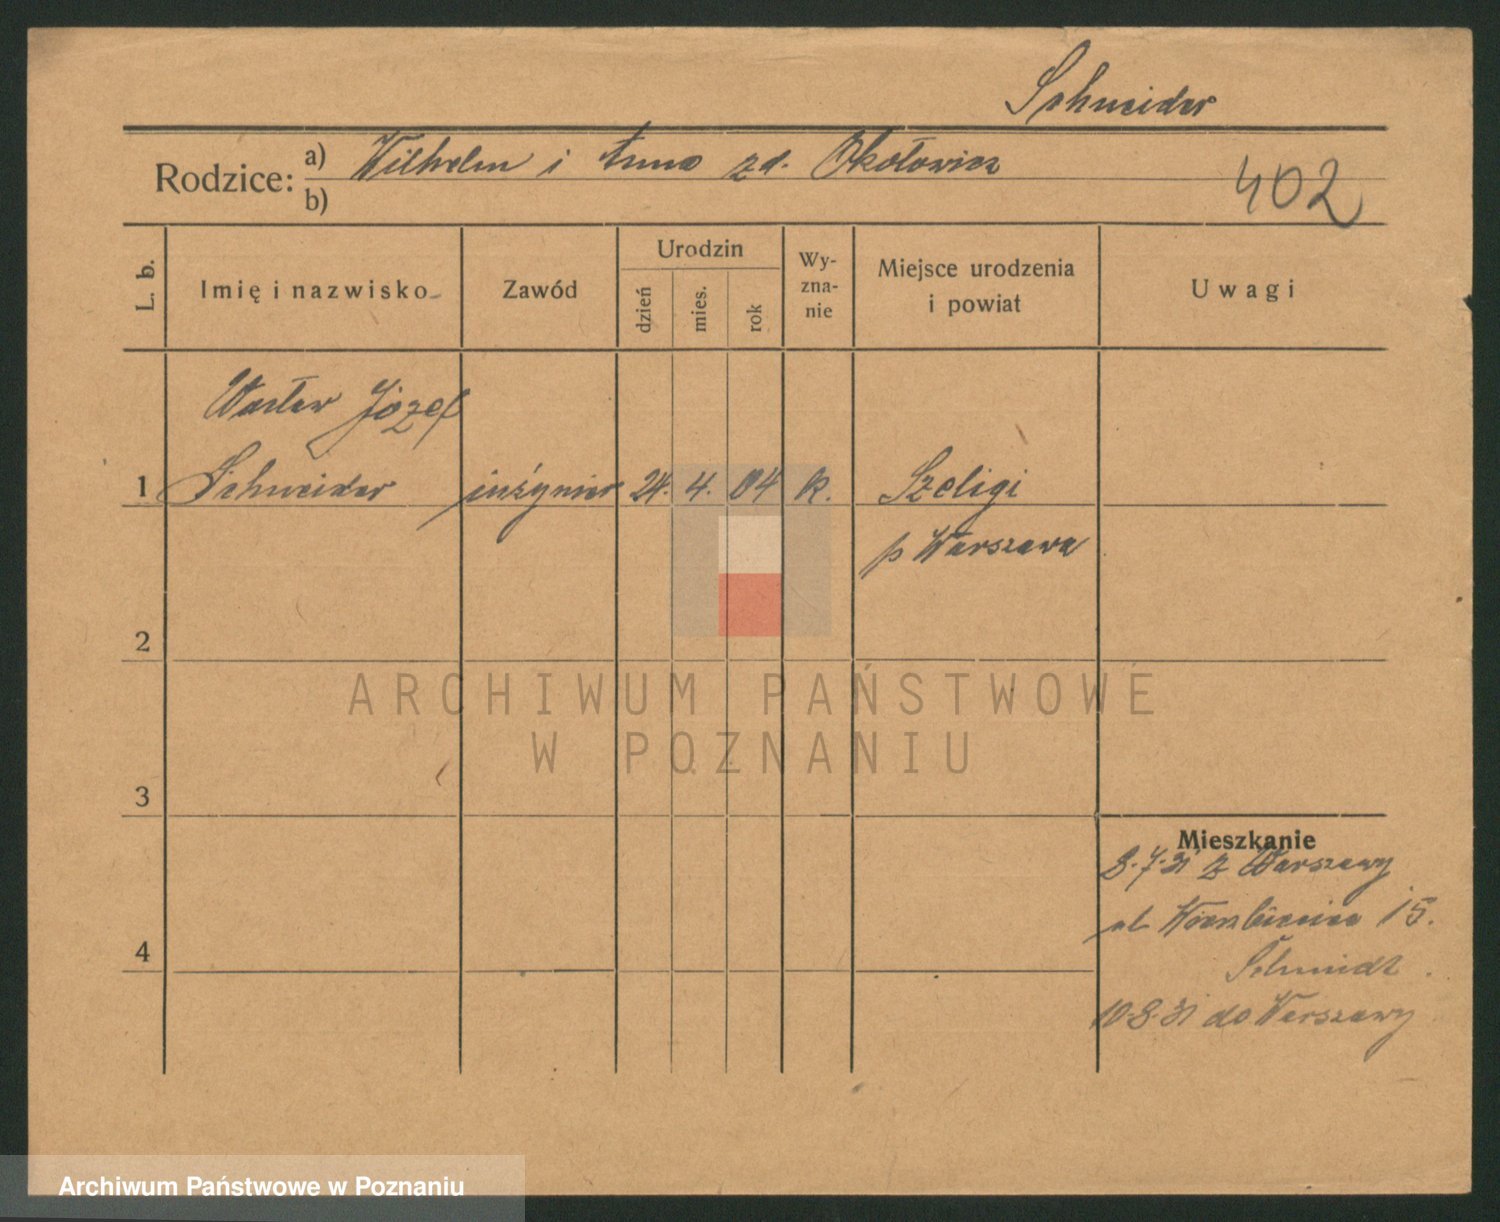 Schneider
Rodzice: a) Wilhelm i Anna zd. Okołowicz
b)
402
L. b.
Imię i nazwisko
Zawód
Urodzin
dzień
mies.
rok
Wy-
zna-
nie
Miejsce urodzenia
i powiat
Uwagi
Wacław Józef
1 Schneider inżynier 24. 4. 04 k. Szeligi
p Warszawa
2
ARCHIWUM PAŃSTWOWE
W POZNANIU
3
Mieszkanie
8.7.31 z Warszawy
ul. Wierzbięcice 15.
Schmidt.
4
10.8.31 do Warszawy
Archiwum Państwowe w Poznaniu